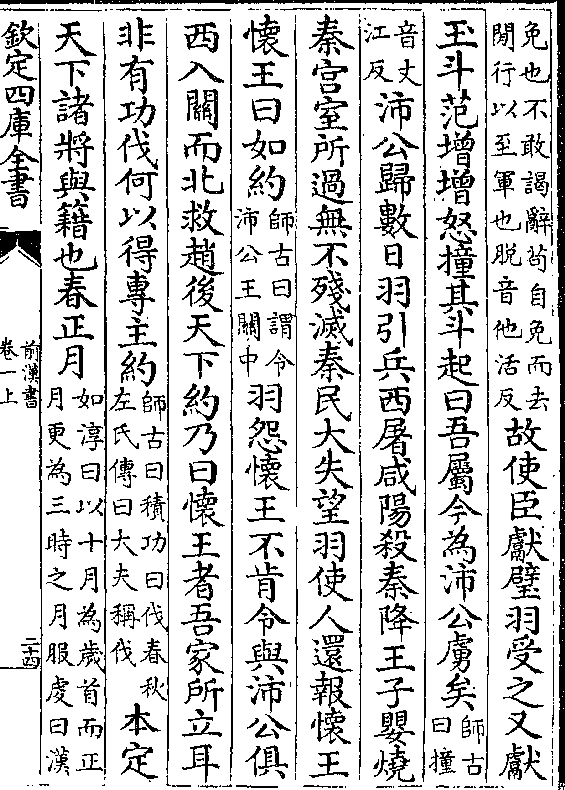 免也不敢謁辭苟自免而去閒行以至軍也脫音他活反故使臣獻璧羽受之又獻
玉斗范增增怒撞其斗起曰吾屬今為沛公虜矣師古曰撞
音丈江反沛公歸數日羽引兵西屠咸陽殺秦降王子嬰燒
秦宮室所過無不殘滅秦民大失望羽使人還報懷王
懷王曰如約師古曰謂令沛公王關中羽怨懷王不肯令與沛公俱
西入關而北救趙後天下約乃曰懷王者吾家所立耳
非有功伐何以得專主約師古曰積功曰伐春秋左氏傳曰大夫稱伐本定
天下諸將與籍也春正月如淳曰以十月為歲首而正月更為三時之月服虔曰漢
欽定四庫全書
前漢書
卷一上
二十四